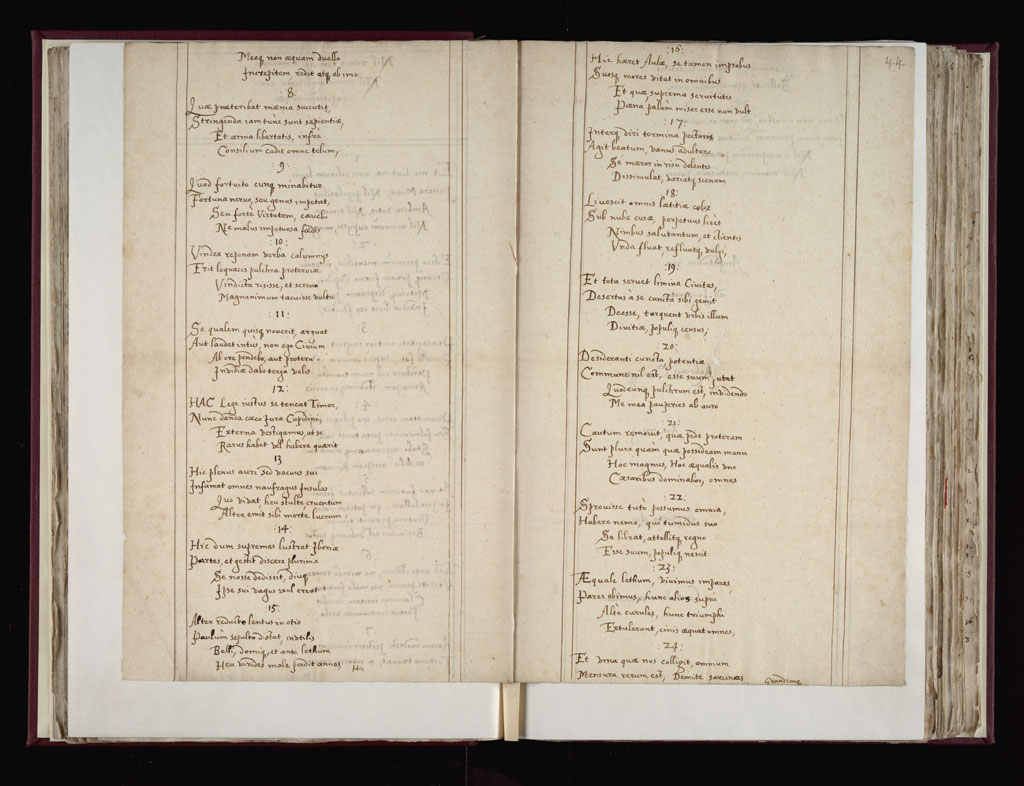 Meoq, non æquam duello
Increpitem redit atq, ab imo
:8:
Quæ præteribat mænia succutit,
Stringenda iam tunc sunt sapientiæ,
Et arma libertatis, infra
Consilium cadit omne telum,
:9:
Quod fortuito cunq, minabitur
Fortuna neruo, seu genus impetat,
Seu forte Virtutem, cauebo
Ne malus impetuosa fœdet
:10:
Vindex reponam verba calumnijs
Erit loquacis pulchra proteruiæ
Vindicta risisse, et sereno
Magnanimum tacuisse vultu
:11:
Se qualem quisq, nouerit, arguat
Aut laudet intùs, non ego Ciuium
Ab ore pendebo, aut proteruæ
Inuidiæ dabo terga velis
:12:
HAC Lege iustus se teneat Timor,
Nunc danda cæco Jura Cupidini,
Externa vestigamus, at se
Rarus habet vel habere quærit
13
Hic plenus auri sed vacuus sui
Infamat omnes naufragus Insulas
Quo viuat heu stultè, cruentum
Alter emit sibi morte lucrum
:14:
Hic dum supremas lustrat Iberiæ
Partes, et gestit discere plurima
Se nosse dediscit, diuq,
Ipse sui vagus exul errat
:15:
Alter reducto lentus in otio
Paulùm sepulto distat, inutilis
Belli, domiq, et ante lethum
Heu virides male perdit annos
Hic
44
:16:
Hic hæret Aulæ, se tamen improbus
Suosq, mores vitat in omnibus
Et quæ suprema seruitutis
Pœna palàm miser esse non vult
:17:
Interq, diri tormina pectoris
Agit beatum, vanus adulter,
Se mæror in risu dolentis
Dissimulat, variatq, scenam
18:
Liuescit omnis lætitiæ color
Sub nube curæ, perpetuus licet
Nimbus salutantum, et clientis
Vnda fluat, refluatq, vulgi,
:19:
Et tota seruet limina Ciuitas,
Desertus à se cuncta sibi gemit
Deesse, torquent vrbis illum
Diuitiæ, populiq, census;
20:
Desideranti cuncta potentiæ
Commune nil est, esse suum putat
Quodcunq, pulchrum est, inuidendo
Me meo pauperies ab auro
:21:
Cautum remouit, quæ pede proteram
Sunt plura quàm quæ possideam manu
Hoc magnus, Hoc æqualis vno
Cæsaribus dominabor, omnes
:22:
Spreuisse tutò possumus omnia,
Habere nemo, qui tumidus suo
Se librat, attollitq, regno
Esse suum, populiq, nescit
:23:
Æquale lethum, viuimus impares
Pares obimus, hunc alios suprà
Altè curules, hunc triumphi
Extulerant, cinis æquat omnes,
24:
Et vrna quæ nos colligit, omnium
Mensura rerum est, Demite sarcinas